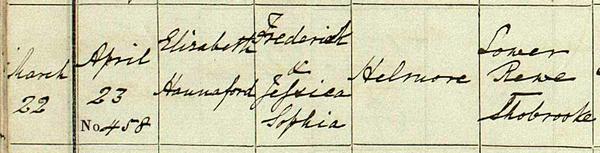 March
22
April
23
No. 458
Elizabeth
Hannaford
Frederick
&
Jessica
Sophia
Helmore
Lower
Rewe
Shobrooke